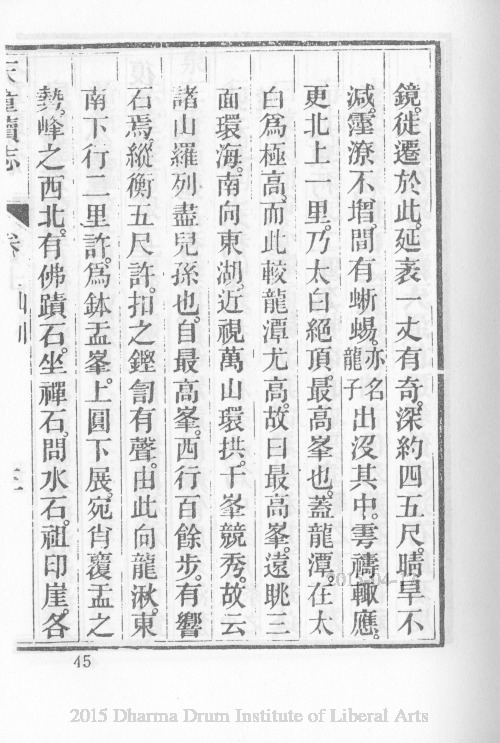 鏡。徙遷於此。延袤一丈有奇。深約四五尺。晴旱不
減。霪潦不增。間有蜥蜴。亦名龍子出沒其中。雩禱輙應。
更北上一里。乃太白絕頂。最高峯也。蓋龍潭。在太
白爲極高。而此較龍潭尤高。故曰最高峯。遠眺三
面環海。南向東湖。近視萬山環拱。千峯競秀。故云
諸山羅列盡兒孫也。自最高峯。西行百餘步。有響
石焉。縱衡五尺許。扣之鏗訇有聲。由此向龍湫。東
南下行二里許。爲鉢盂峯。上圓下展。宛肖覆盂之
勢。峰之西北。有佛蹟石。坐禪石。問水石。祖印崖。各
天童續志
卷
山川
45
2015 Dharma Drum Institute of Liberal Arts